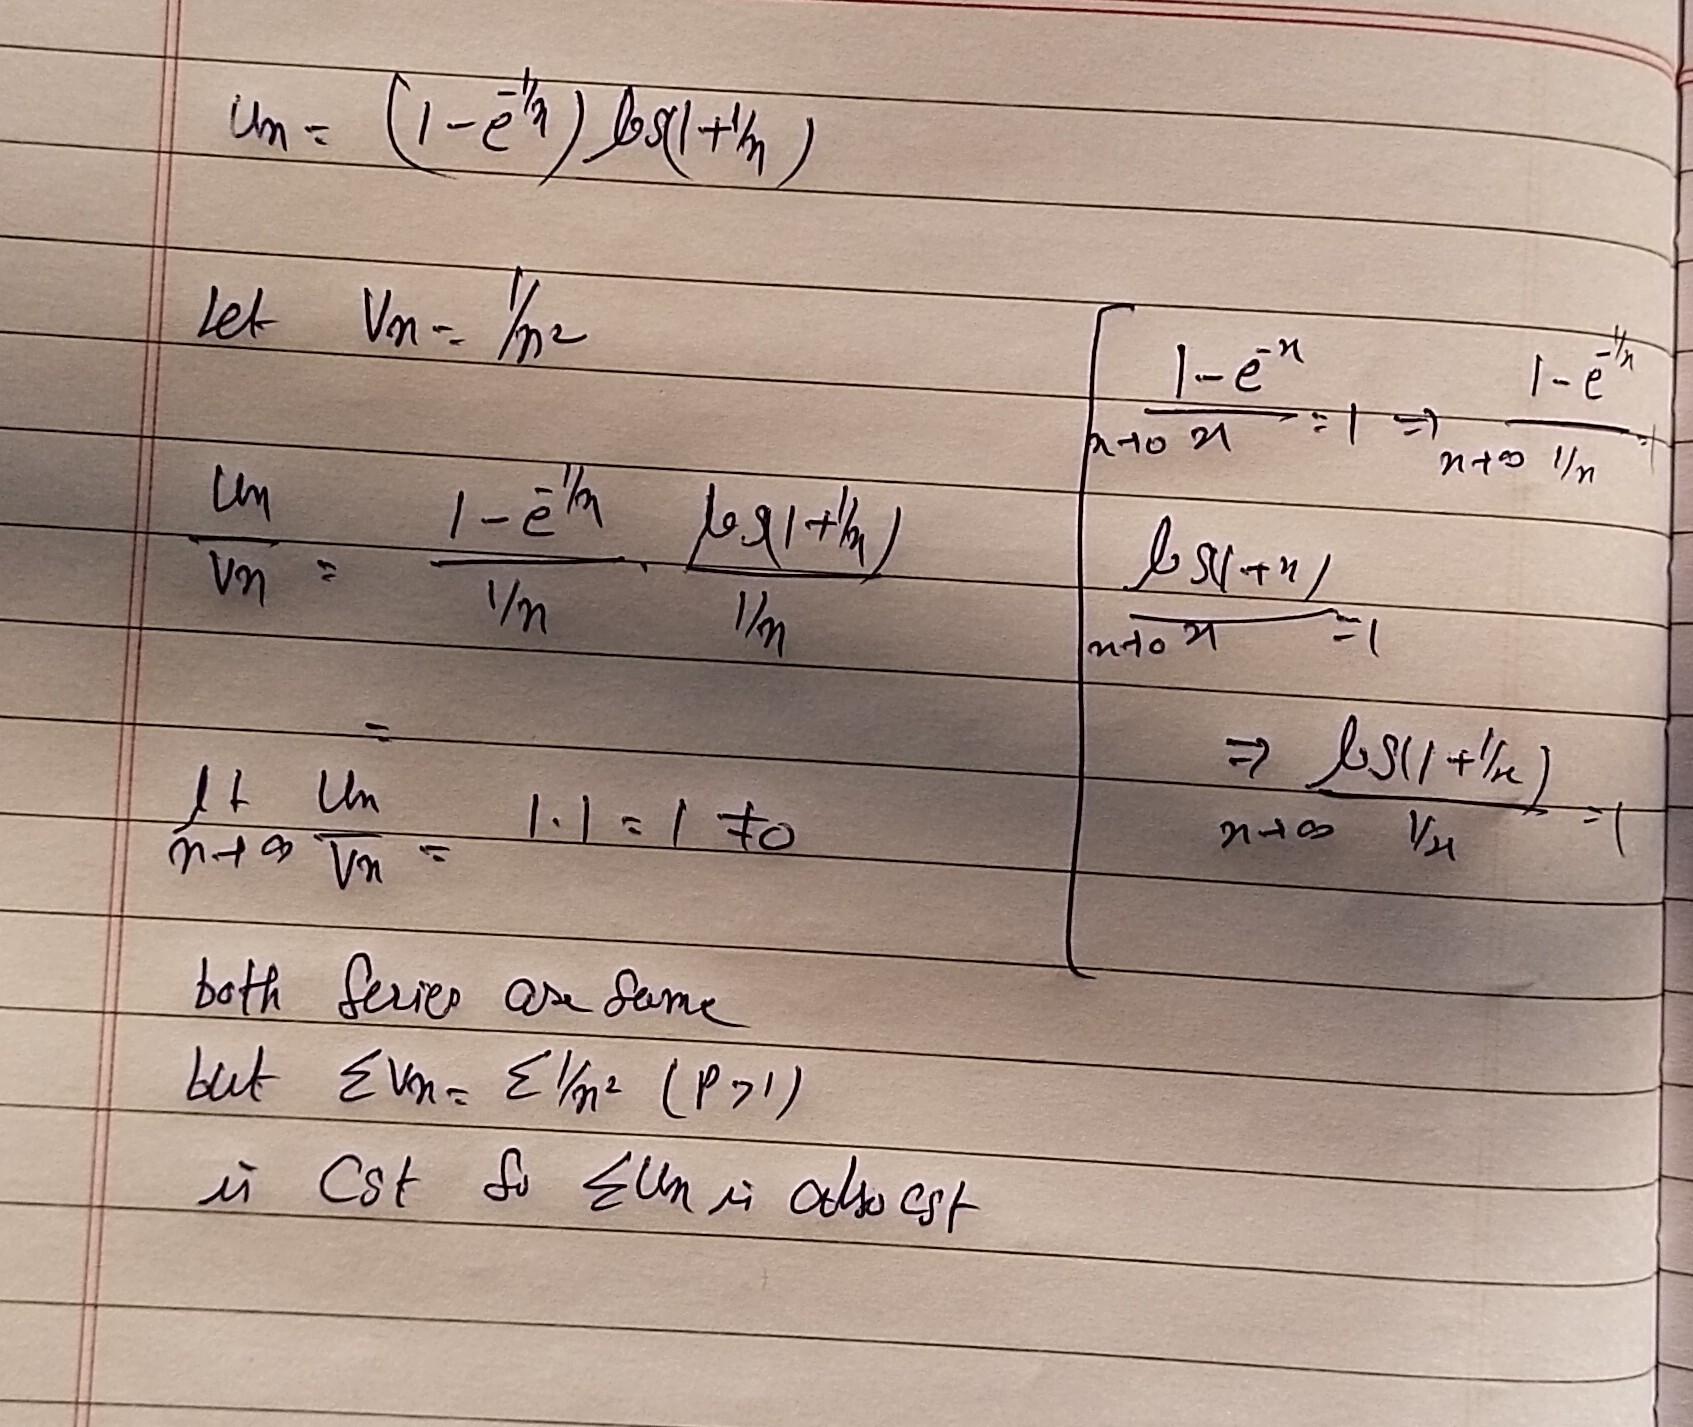 Un = (1-e^-1/n) log(1+1/n)
Let Vn = 1/n²
Un/Vn = (1-e^-1/n)/(1/n) · log(1+1/n)/(1/n)
=
lt n→∞ Un/Vn = 1·1 = 1 ≠0
both series are same
but ΣVn = Σ1/n² (P>1)
is Cgt so ΣUn is also cgt
n→0 (1-e^-x)/x = 1 ⇒ n→∞ (1-e^-1/n)/(1/n) = 1
n→0 log(1+x)/x = 1
⇒ n→∞ log(1+1/x)/(1/x) = 1